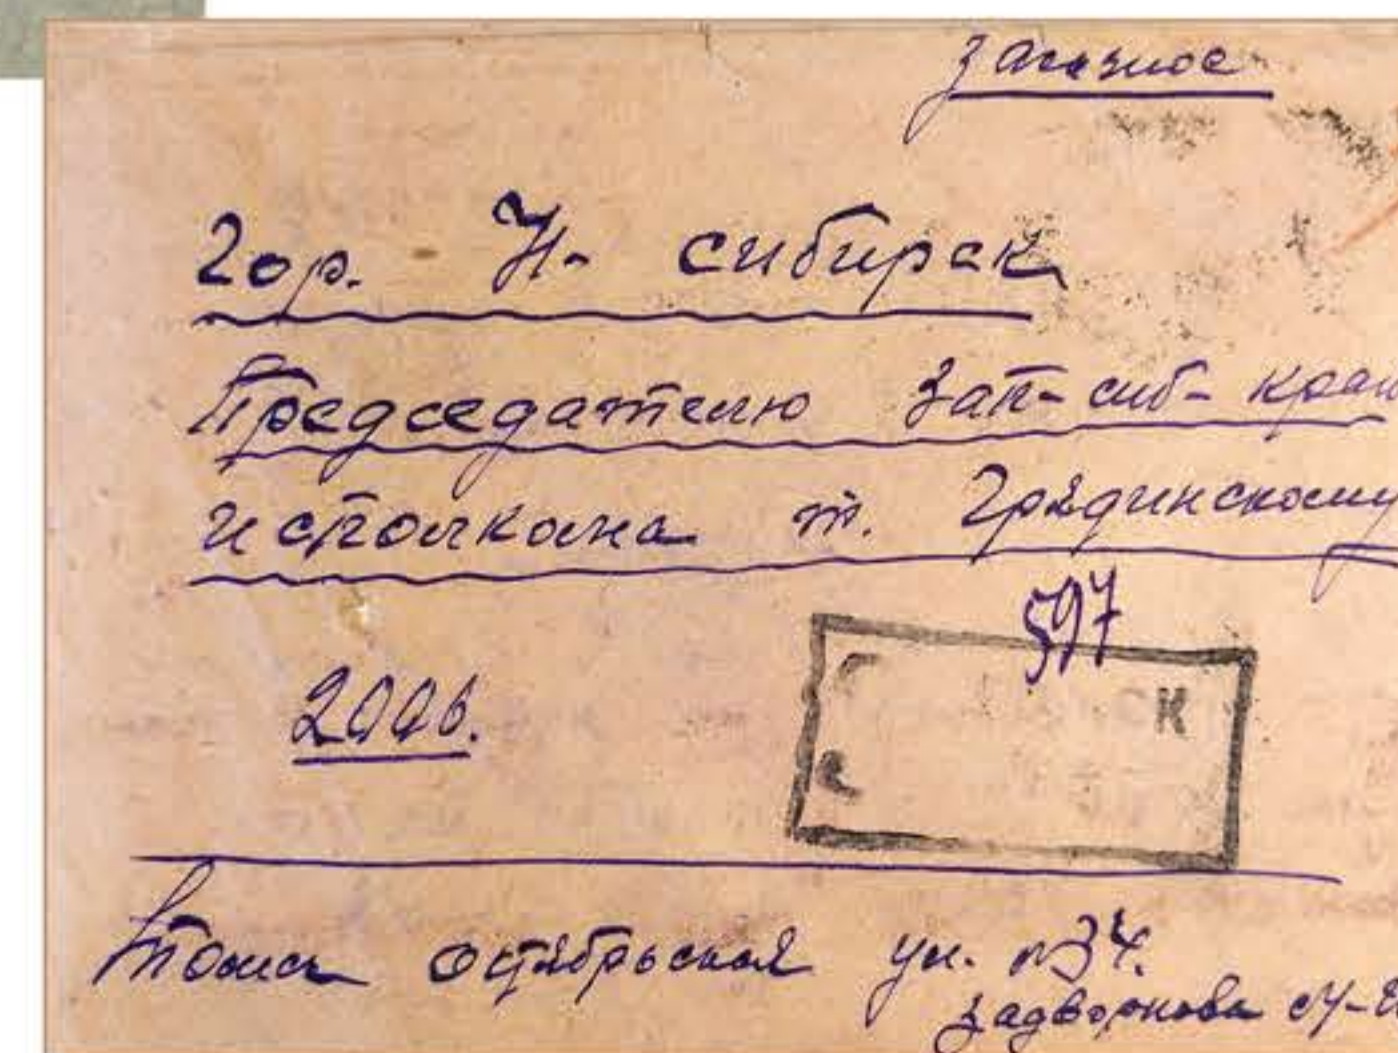 заказное
гор. Н-сибирск
Председателю Зап-сиб-край
исполкома т. Грядинскому
597
СК
Томск октябрьская ул. №34.
Задворнова